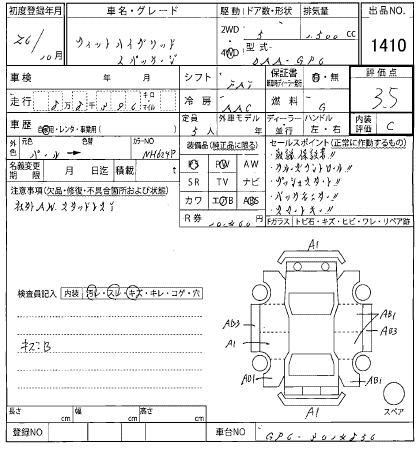 初度登録年月 車名・グレード 駆動 ドア数・形状 排気量 出品NO.
26/10月 フィットハイブリッド 2WD 4WD 5 1,500 cc 1410
Sパッケージ 型式 DAA-GP6
車検 年 月 シフト FAT 保証書 有・無 評価点
走行 キロ マイル 冷房 AAC 燃料 G 3.5
車歴 自家用・レンタ・事業用( ) 定員 5人 外車モデル 年 ディーラー 並行 ハンドル 左・右 内装評価 C
外色 元色 パール 色替 カラーNO NH624P 装備品(純正品に限る) セールスポイント(正常に作動するもの)
名義変更期限 月 日迄 積載 t PS PW AW
注意事項(欠品・修復・不具合箇所および状態) SR TV ナビ
社外AW スタッドレス カワ エアB ABS
R券
Fガラス トビ石・キズ・ヒビ・ワレ・リペア跡
検査員記入 内装 汚レ・スレ・キズ・キレ・コゲ・穴
キズ:B
A1
AD3
A1
AD1
AD1
AD3
AB1
A1
スペア
長さ cm 幅 cm 高さ cm
登録NO 車台NO GP6-